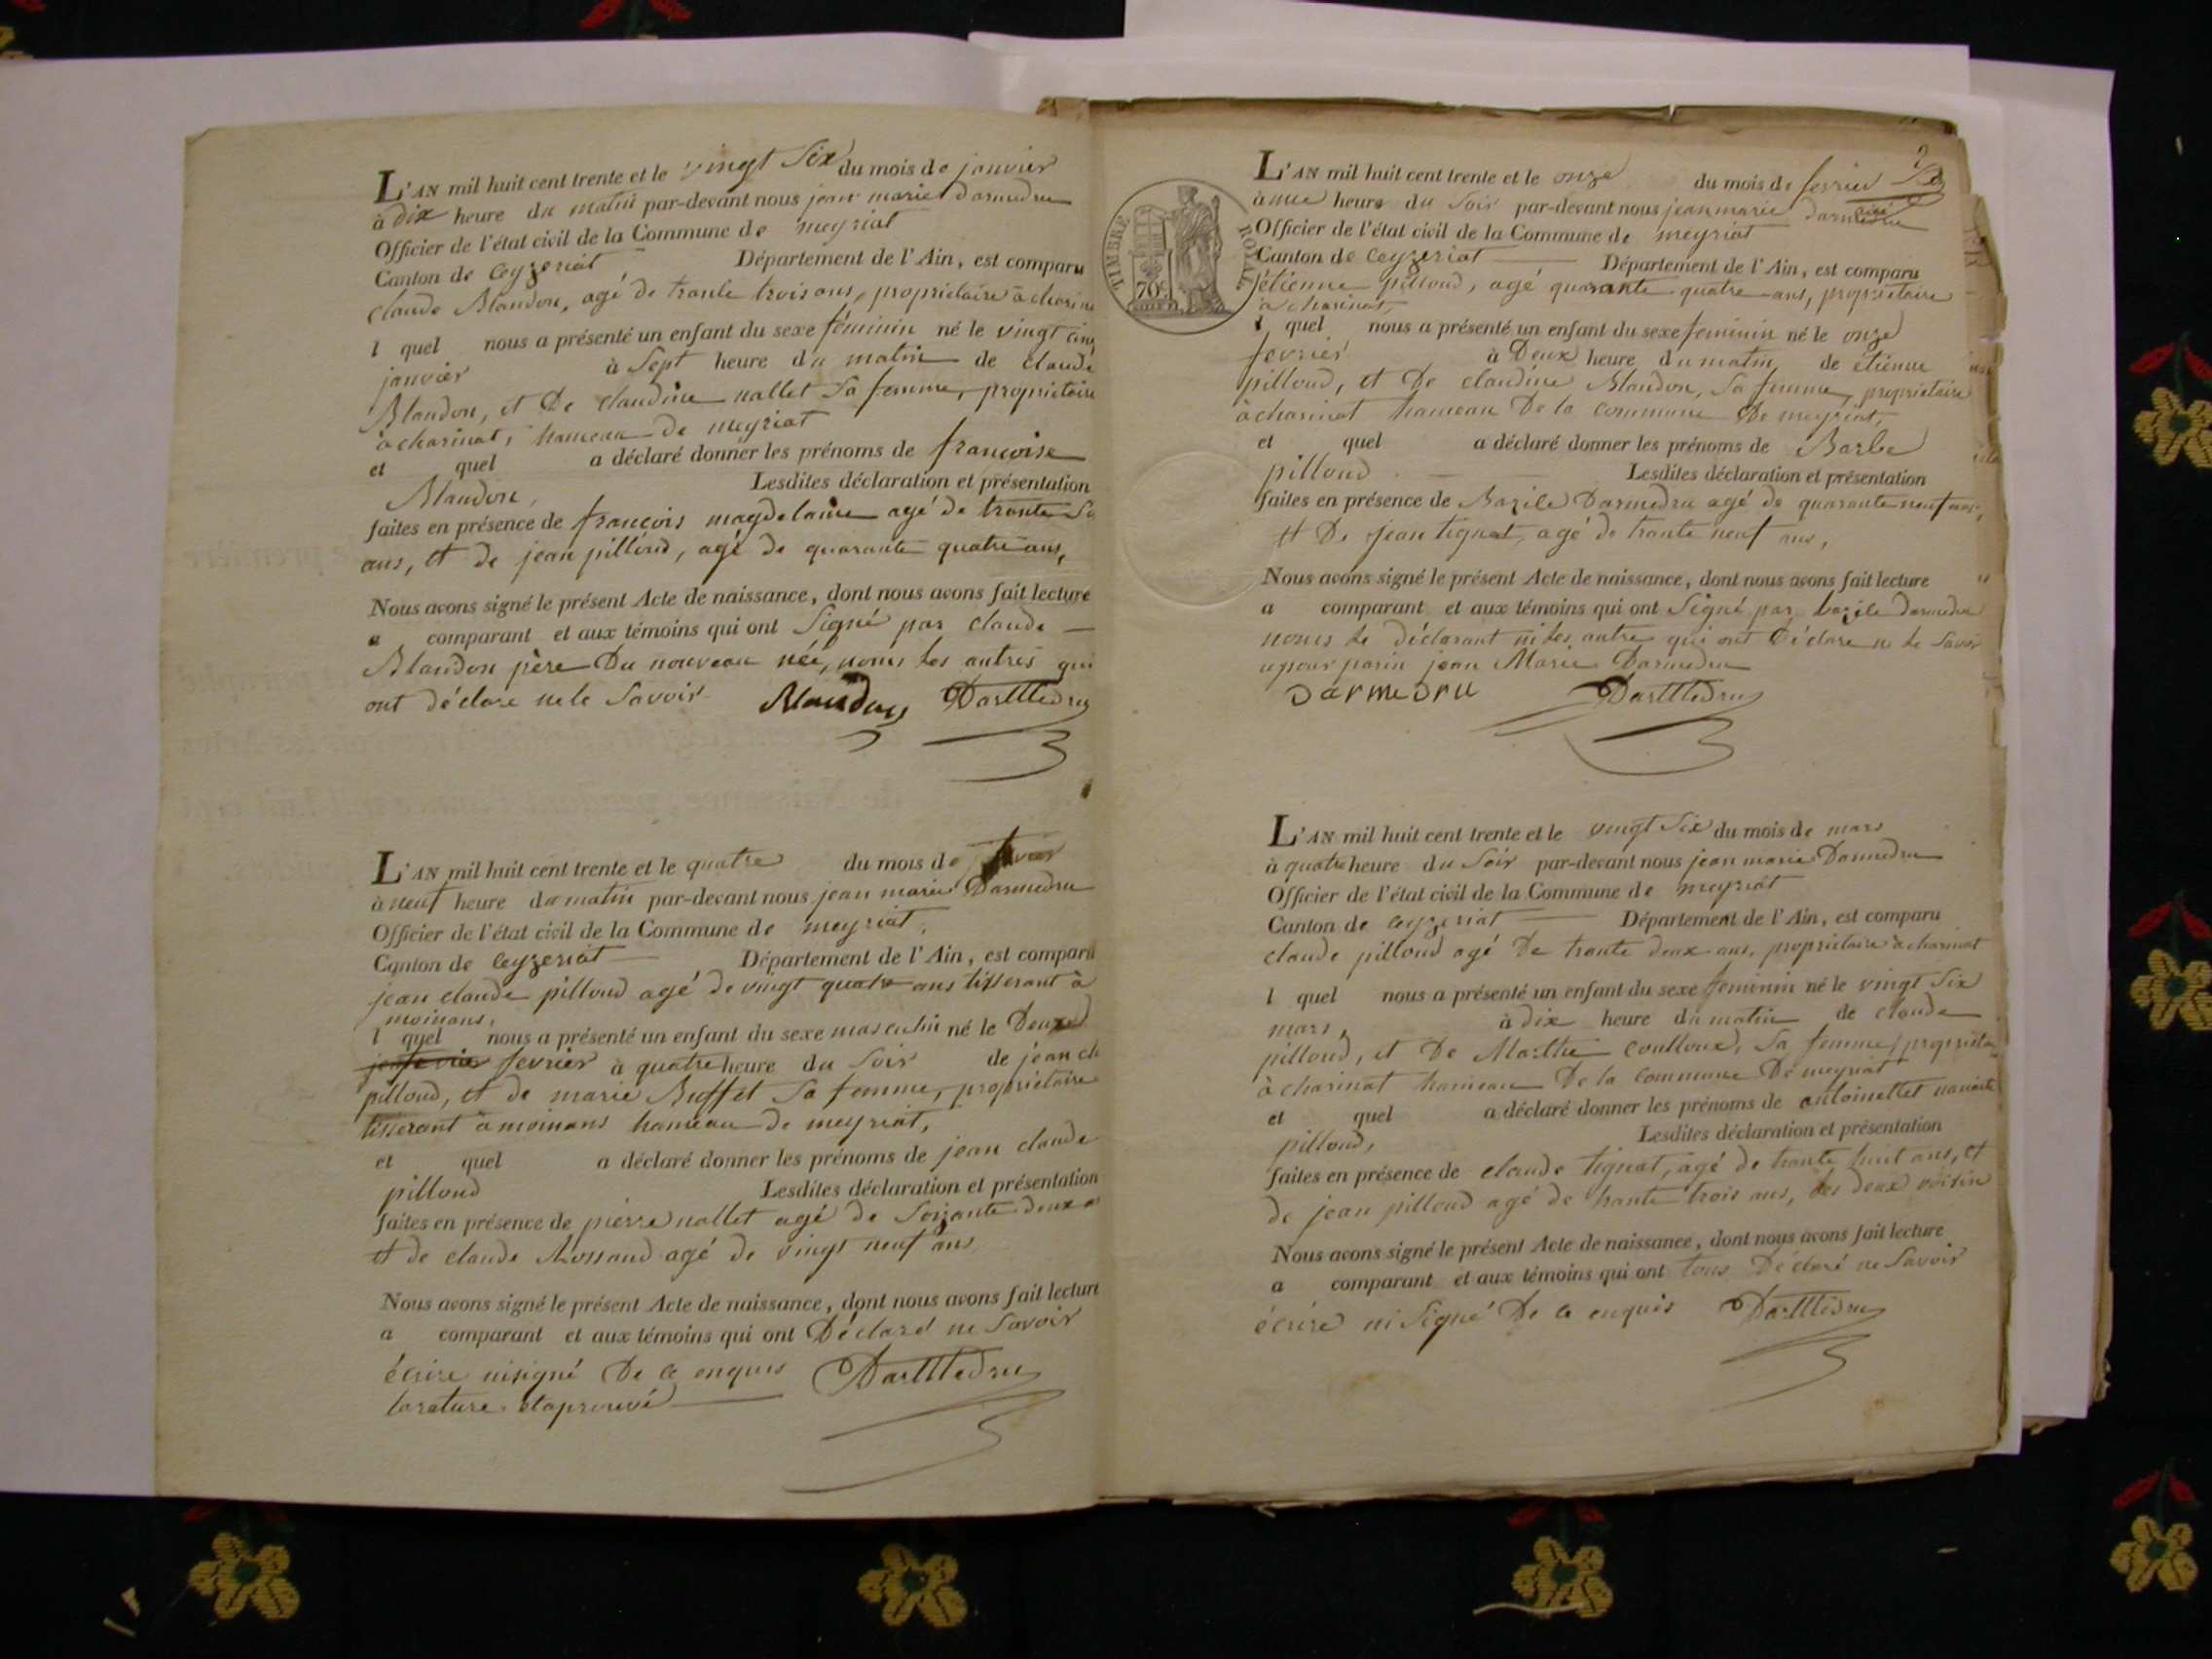 L'AN mil huit cent trente et le vingt six du mois de janvier
à dix heure du matin par-devant nous jean marie Darmedru
Officier de l'état civil de la Commune de meyriat
Canton de Ceyzeriat Département de l'Ain, est comparu
claude Blandon, agé de trante trois ans, propriétaire à charina
l quel nous a présenté un enfant du sexe féminin né le vingt cinq
janvier à Sept heure du matin de claude
Blandon, et De claudine nallet Sa femme, propriétaire
à charinat, hameau de meyriat
et quel a déclaré donner les prénoms de françoise
Blandon, Lesdites déclaration et présentation
faites en présence de françois magdelaine agé de trante
ans, et de jean pilloud, agé de quarante quatre ans,
Nous avons signé le présent Acte de naissance, dont nous avons fait lecture
a comparant et aux témoins qui ont Signé par claude
Blandon père Du nouveau née, nomis les autres qui
ont déclare ne le Savoir Blandon DarMedru
L'AN mil huit cent trente et le quatre du mois de fevrier
à neuf heure du matin par-devant nous jean marie Darmedru
Officier de l'état civil de la Commune de meyriat,
Canton de Ceyzeriat Département de l'Ain, est comparu
jean claude pilloud agé de vingt quatre ans tisserant à
moinans,
l quel nous a présenté un enfant du sexe masculin né le Deux
fevrier à quatre heure du Soir de jean cl
pilloud, et de marie Buffet Sa femme, propriétaire
tisserant à moinans hameau de meyriat,
et quel a déclaré donner les prénoms de jean claude
pilloud Lesdites déclaration et présentation
faites en présence de pierre nallet agé de Soixante deux a
et de claude Rossand agé de vingt neuf ans
Nous avons signé le présent Acte de naissance, dont nous avons fait lecture
a comparant et aux témoins qui ont Déclaré ne Savoir
écrire nisigné De ce enquis DarMedru
larature etaprouvé
2
TIMBRE ROYAL
70 c
L'AN mil huit cent trente et le onze du mois de fevrier
à une heure du Soir par-devant nous jean marie darmedru
Officier de l'état civil de la Commune de meyriat
Canton de Ceyzeriat Département de l'Ain, est comparu
étienne pilloud, agé quarante quatre ans, propriétaire
à charinat,
l quel nous a présenté un enfant du sexe feminin né le onze
fevrier à Deux heure du matin de etienne
pilloud, et De claudine Blandon, Sa femme, propriétaire
à charinat hameau De la commune De meyriat,
et quel a déclaré donner les prénoms de Barbe
pilloud Lesdites déclaration et présentation
faites en présence de Bazile Darmedru agé de quarante neuf ans,
et De jean tignat, agé de trante neuf ans,
Nous avons signé le présent Acte de naissance, dont nous avons fait lecture
a comparant et aux témoins qui ont Signé par bazile darmedru
nomis le déclarant ni les autre qui ont Déclare ne le Savoir
jean Marie Darmedru
DARMEDRU DarMedru
L'AN mil huit cent trente et le vingt Six du mois de mars
à quatre heure du Soir par-devant nous jean marie Darmedru
Officier de l'état civil de la Commune de meyriat
Canton de Ceyzeriat Département de l'Ain, est comparu
claude pilloud agé De trante deux ans, propriétaire à charinat
l quel nous a présenté un enfant du sexe feminin né le vingt Six
mars, à dix heure du matin de claude
pilloud, et De Marthe Coulloud, Sa femme, propriétai
à charinat hameau De la commune De meyriat
et quel a déclaré donner les prénoms de antoinettet
pilloud, Lesdites déclaration et présentation
faites en présence de claude tignat, agé de trante huit ans, et
de jean pilloud agé de trante trois ans, les deux voisin
Nous avons signé le présent Acte de naissance, dont nous avons fait lecture
a comparant et aux témoins qui ont tous Déclaré ne Savoir
écrire ni Signé De ce enquis DarMedru